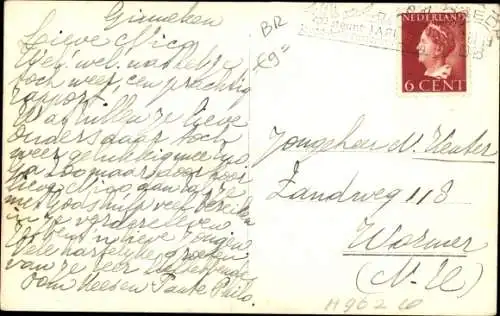 Ginneken
Lieve Nico
Wel, wel, wat heb je
toch weer, een prachtig
rapport
Wat zullen je lieve
ouders daar toch
weer gelukkig mee
Ga zoo maar door hoor
lieve Nico, dan zal je
met Gods hulp veel bereiken
in je verdere leven
Je bent 'n lieve jongen
Vele hartelijke groeten
van je zeer
Oom Kees en Tante Philo.
BR
£9=
NEDERLAND
6 CENT
Jongeheer N.
Zandweg 118
Wormer
(N-H)